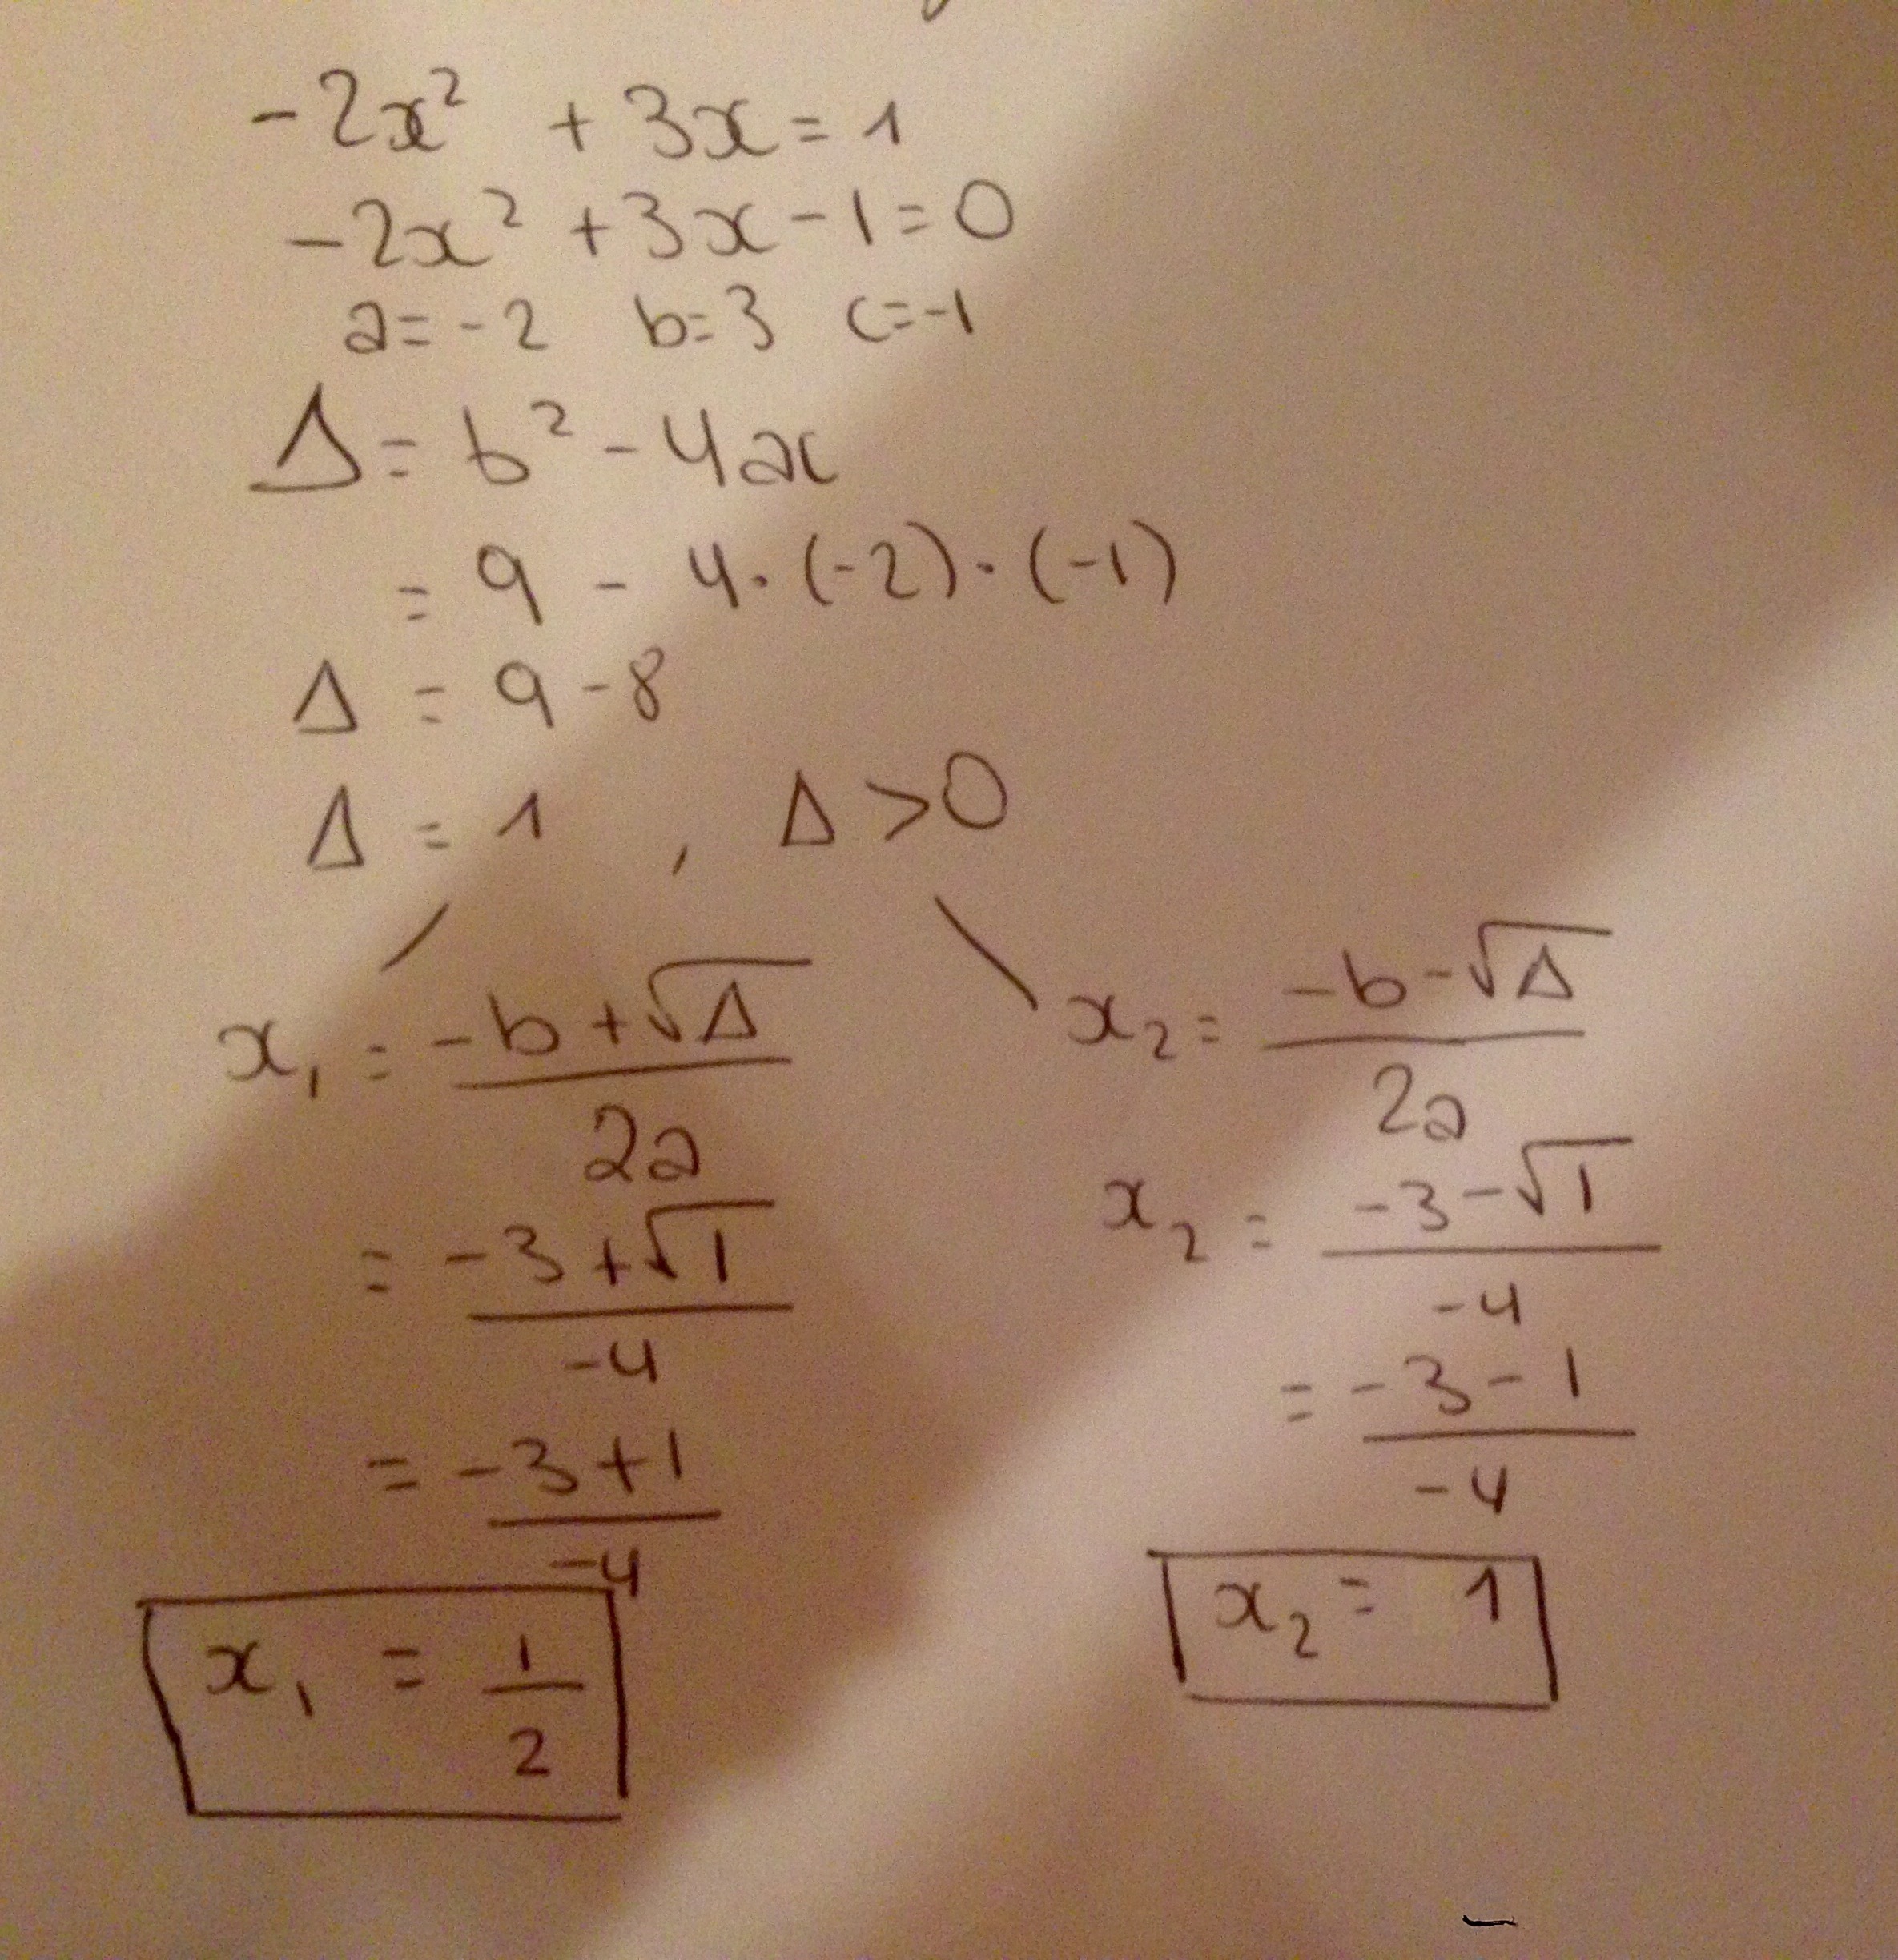 -2x² + 3x = 1
-2x² + 3x - 1 = 0
a = -2 b = 3 c = -1
Δ = b² - 4ac
= 9 - 4·(-2)·(-1)
Δ = 9 - 8
Δ = 1 , Δ > 0
x₁ = (-b + √Δ) / 2a
= (-3 + √1) / -4
= (-3 + 1) / -4
x₁ = 1/2
x₂ = (-b - √Δ) / 2a
x₂ = (-3 - √1) / -4
= (-3 - 1) / -4
x₂ = 1